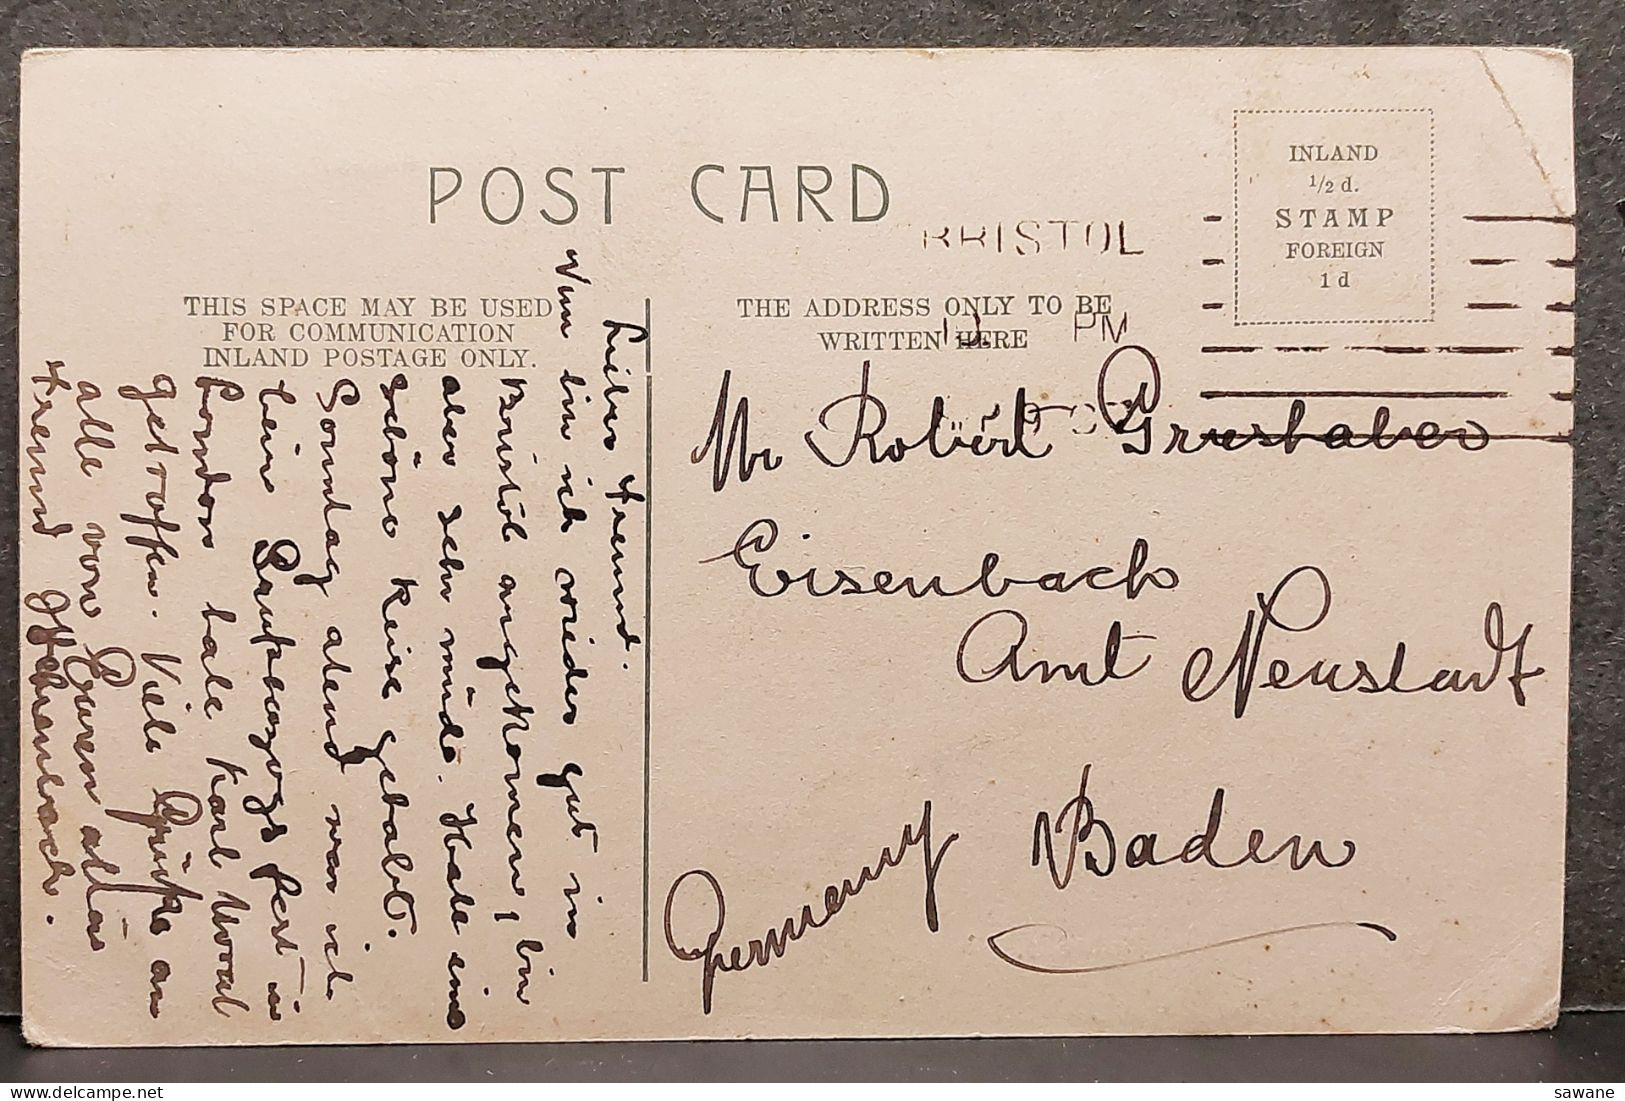 POST CARD
BRISTOL
PM
INLAND
1/2 d.
STAMP
FOREIGN
1 d
THIS SPACE MAY BE USED
FOR COMMUNICATION
INLAND POSTAGE ONLY.
THE ADDRESS ONLY TO BE
WRITTEN HERE
Lieber Freund.
Nun bin ich wieder gut in
Bristol angekomen, bin
aber sehr müde. Habe eine
schöne Reise gehabt.
Sonntag abend war ich
beim fest in
London habe Karl
getroffen. Viele Grüße an
alle von Euren alten
Freund
Mr Robert Grieshaber
Eisenbach
Amt Neustadt
Baden
Germany
sawane